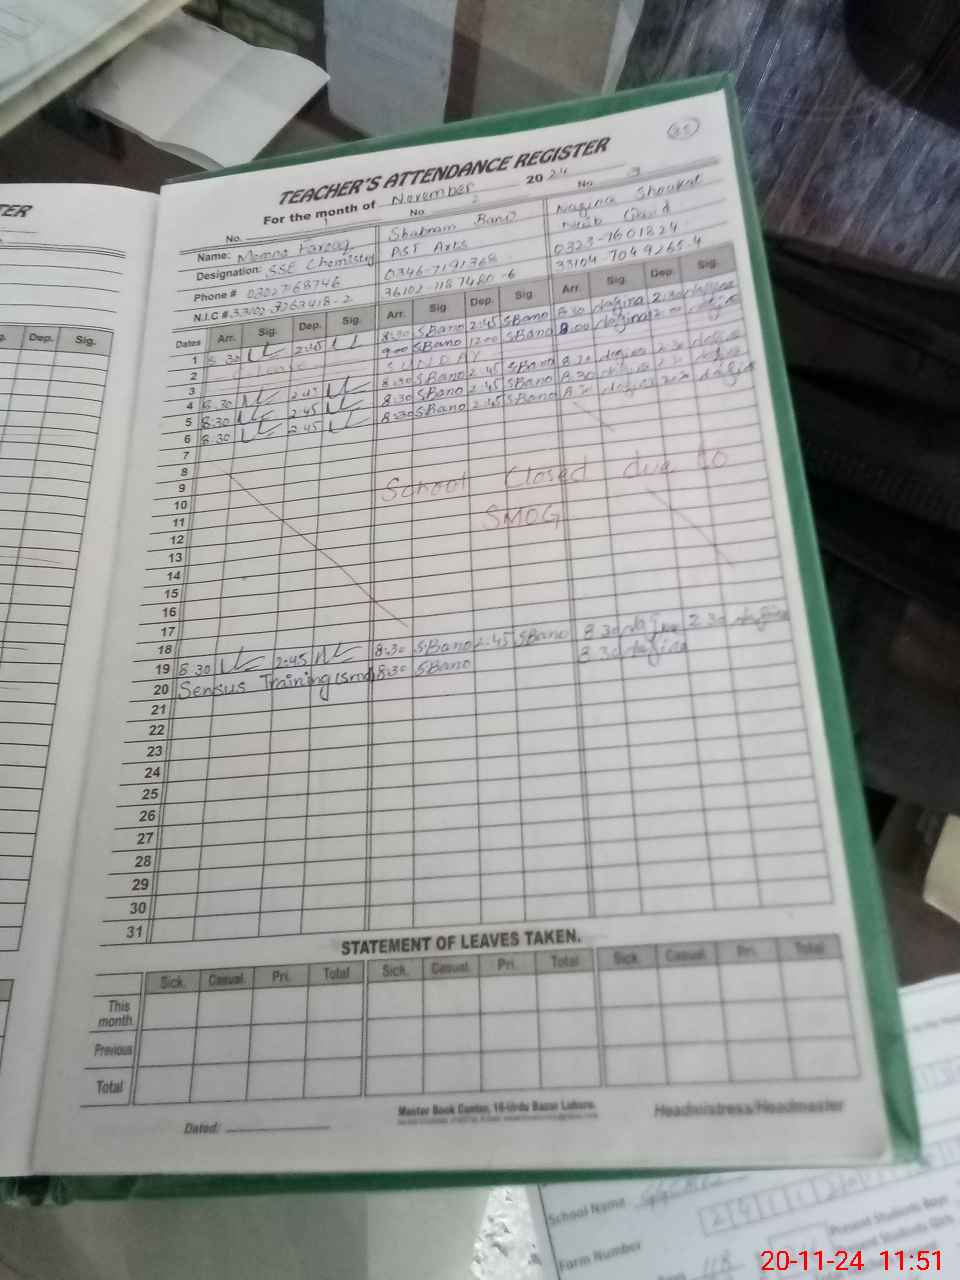 TER
35
TEACHER'S ATTENDANCE REGISTER
For the month of November 2024
No. 1 No. 2 No. 3
Name: Momna Farooq Shabnam Bano Nagina Shoukat
Designation: SSE Chemistry PST Arts Naib Qasid
Phone # 03027168746 0346-7191368 0323-7601824
N.I.C #
Dep. Sig.
Dates Arr. Sig. Dep. Sig. Arr. Sig. Dep. Sig. Arr. Sig. Dep. Sig.
1 8:30 2:45 8:30 SBano 2:45 SBano 8:30 Nagina 2:30 Nagina
2 9:00 SBano 12:00 SBano 8:00 Nagina 12:00 Nagina
3 SUNDAY
4 8:30 2:45 8:30 SBano 2:45 SBano 8:30 Nagina 2:30 Nagina
5 8:30 2:45 8:30 SBano 2:45 SBano 8:30 Nagina 2:30 Nagina
6 8:30 2:45 8:30 SBano 2:45 SBano 8:30 Nagina 2:30 Nagina
7
8
9 School Closed due to
10
11 SMOG
12
13
14
15
16
17
18
19 8:30 2:45 8:30 SBano 2:45 SBano 8:30 Nagina 2:30 Nagina
20 Sensus Training 8:30 SBano 8:30 Nagina
21
22
23
24
25
26
27
28
29
30
31
STATEMENT OF LEAVES TAKEN.
Sick. Casual. Pri. Total Sick. Casual. Pri. Total Sick. Casual. Pri. Total
This month
Previous
Total
Dated:
Master Book Center, 16-Urdu Bazar Lahore.
Headmistress/Headmaster
School Name
Form Number
Present Students Boys
20-11-24 11:51